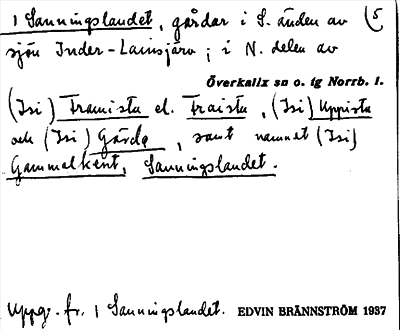 1 Sanningslandet, gårdar i S. änden av (5
sjön Inder-Lainsjärv; i N. delen av
Överkalix sn o. tg Norrb. l.
(Isi) Framista el. Fraista, (Isi) Uppista
och (Isi) Gärde, samt namnet (Isi)
Gammelkent, Sanningslandet.
Uppg. fr. 1 Sanningslandet. EDVIN BRÄNNSTRÖM 1937